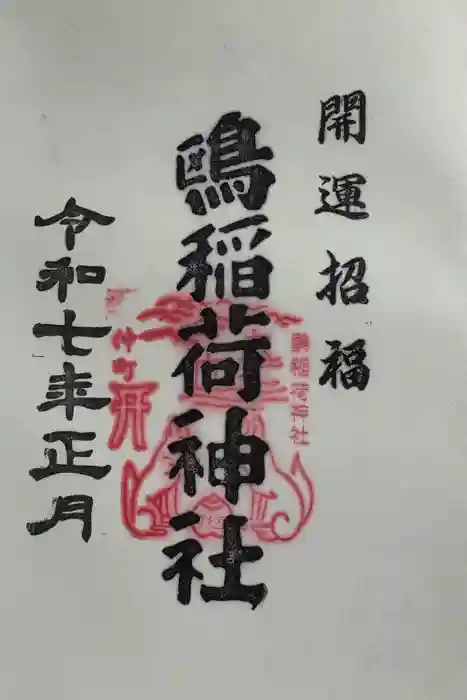 開運招福
鴎稲荷神社
令和七年正月
仲町
稲荷神社